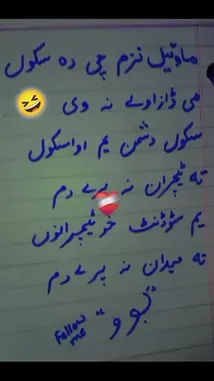 ماډېل نزم چې ده سکول
مې ډزاولې نه وی
سکول دشمن یم اواسکول
ته ټیچران نه پرېدم
یم سټوډنټ خو ټیچرانوں
ته میدان نه پرېدم
"
Follow me